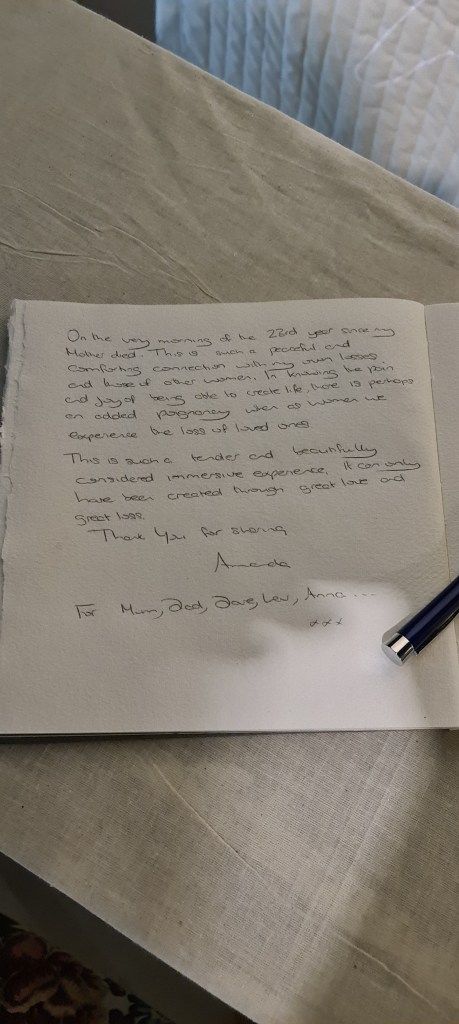 On the very morning of the 23rd year since my
Mother died. This is such a peaceful and
comforting connection with my own losses
and those of other women. In knowing the pain
and joy of being able to create life, there is perhaps
an added poignancy when as women we
experience the loss of loved ones.
This is such a tender and beautifully
considered immersive experience. It can only
have been created through great love and
great loss.
Thank You for sharing
Amanda
For Mum, Dad, Dave, Lew, Anna ...
xxx